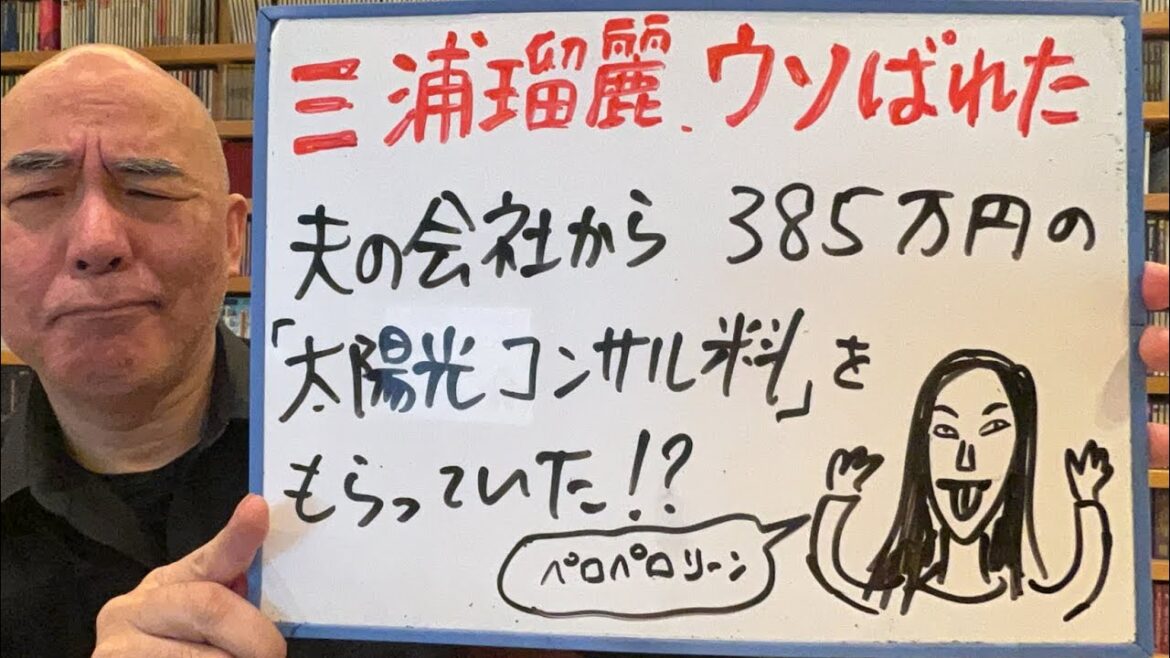 三浦瑠麗、ウソばれた
夫の会社から385万円の
「太陽光コンサル料」を
もらっていた!?
ペロペロリーン